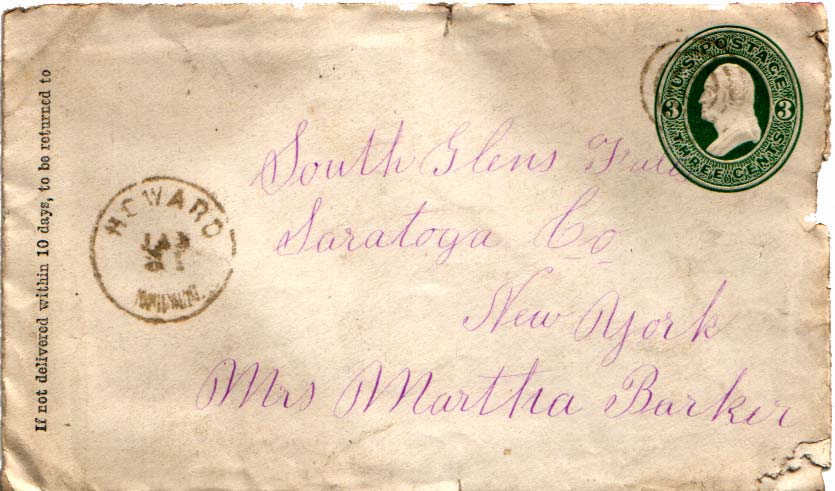 If not delivered within 10 days, to be returned to
U.S. POSTAGE
3 3
THREE CENTS
HOWARD
South Glens Falls
Saratoga Co
New York
Mrs Martha Barker